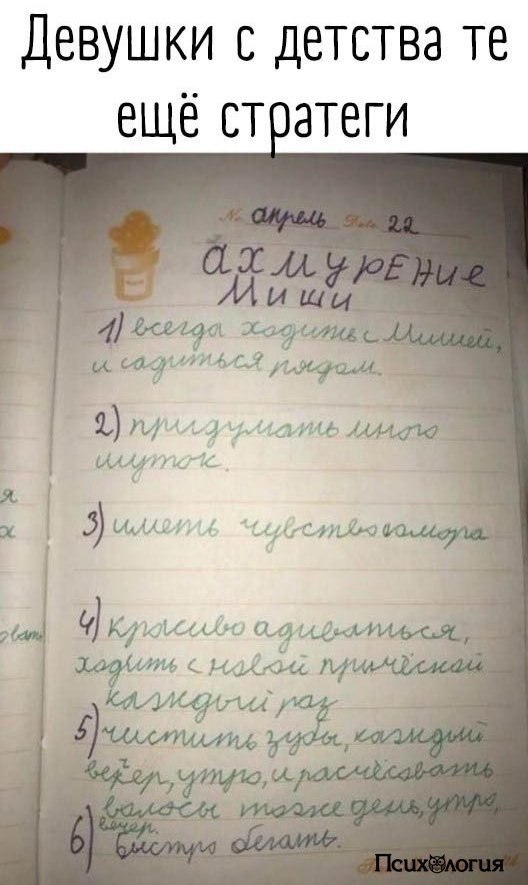 Девушки с детства те
ещё стратеги
№ апрель Date 22
ахмурЕние
Миши
1) всегда ходить с Мишей,
и садиться рядом.
2) придумать много
шуток.
я
х
3) иметь чувство юмора
овать
4) красиво адиваться,
ходить с новой причёской
каждый раз
5) чистить зубы, каждый
вечер, утро, и расчёсовать
валосы тоже день, утро,
вечер.
6) быстро бегать.
Психология